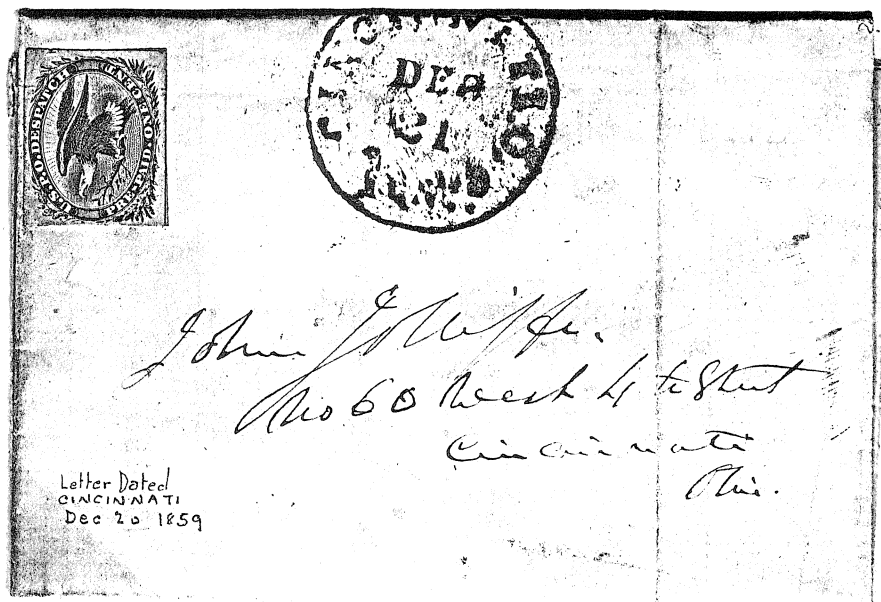 U.S.P.O. DESPATCH
PRE-PAID ONE CENT
CINCINNATI OHIO
DEC
21
John Jolliffe.
No 60 West 4th Street
Cincinnati
Ohio.
Letter Dated
CINCINNATI
Dec 20 1859